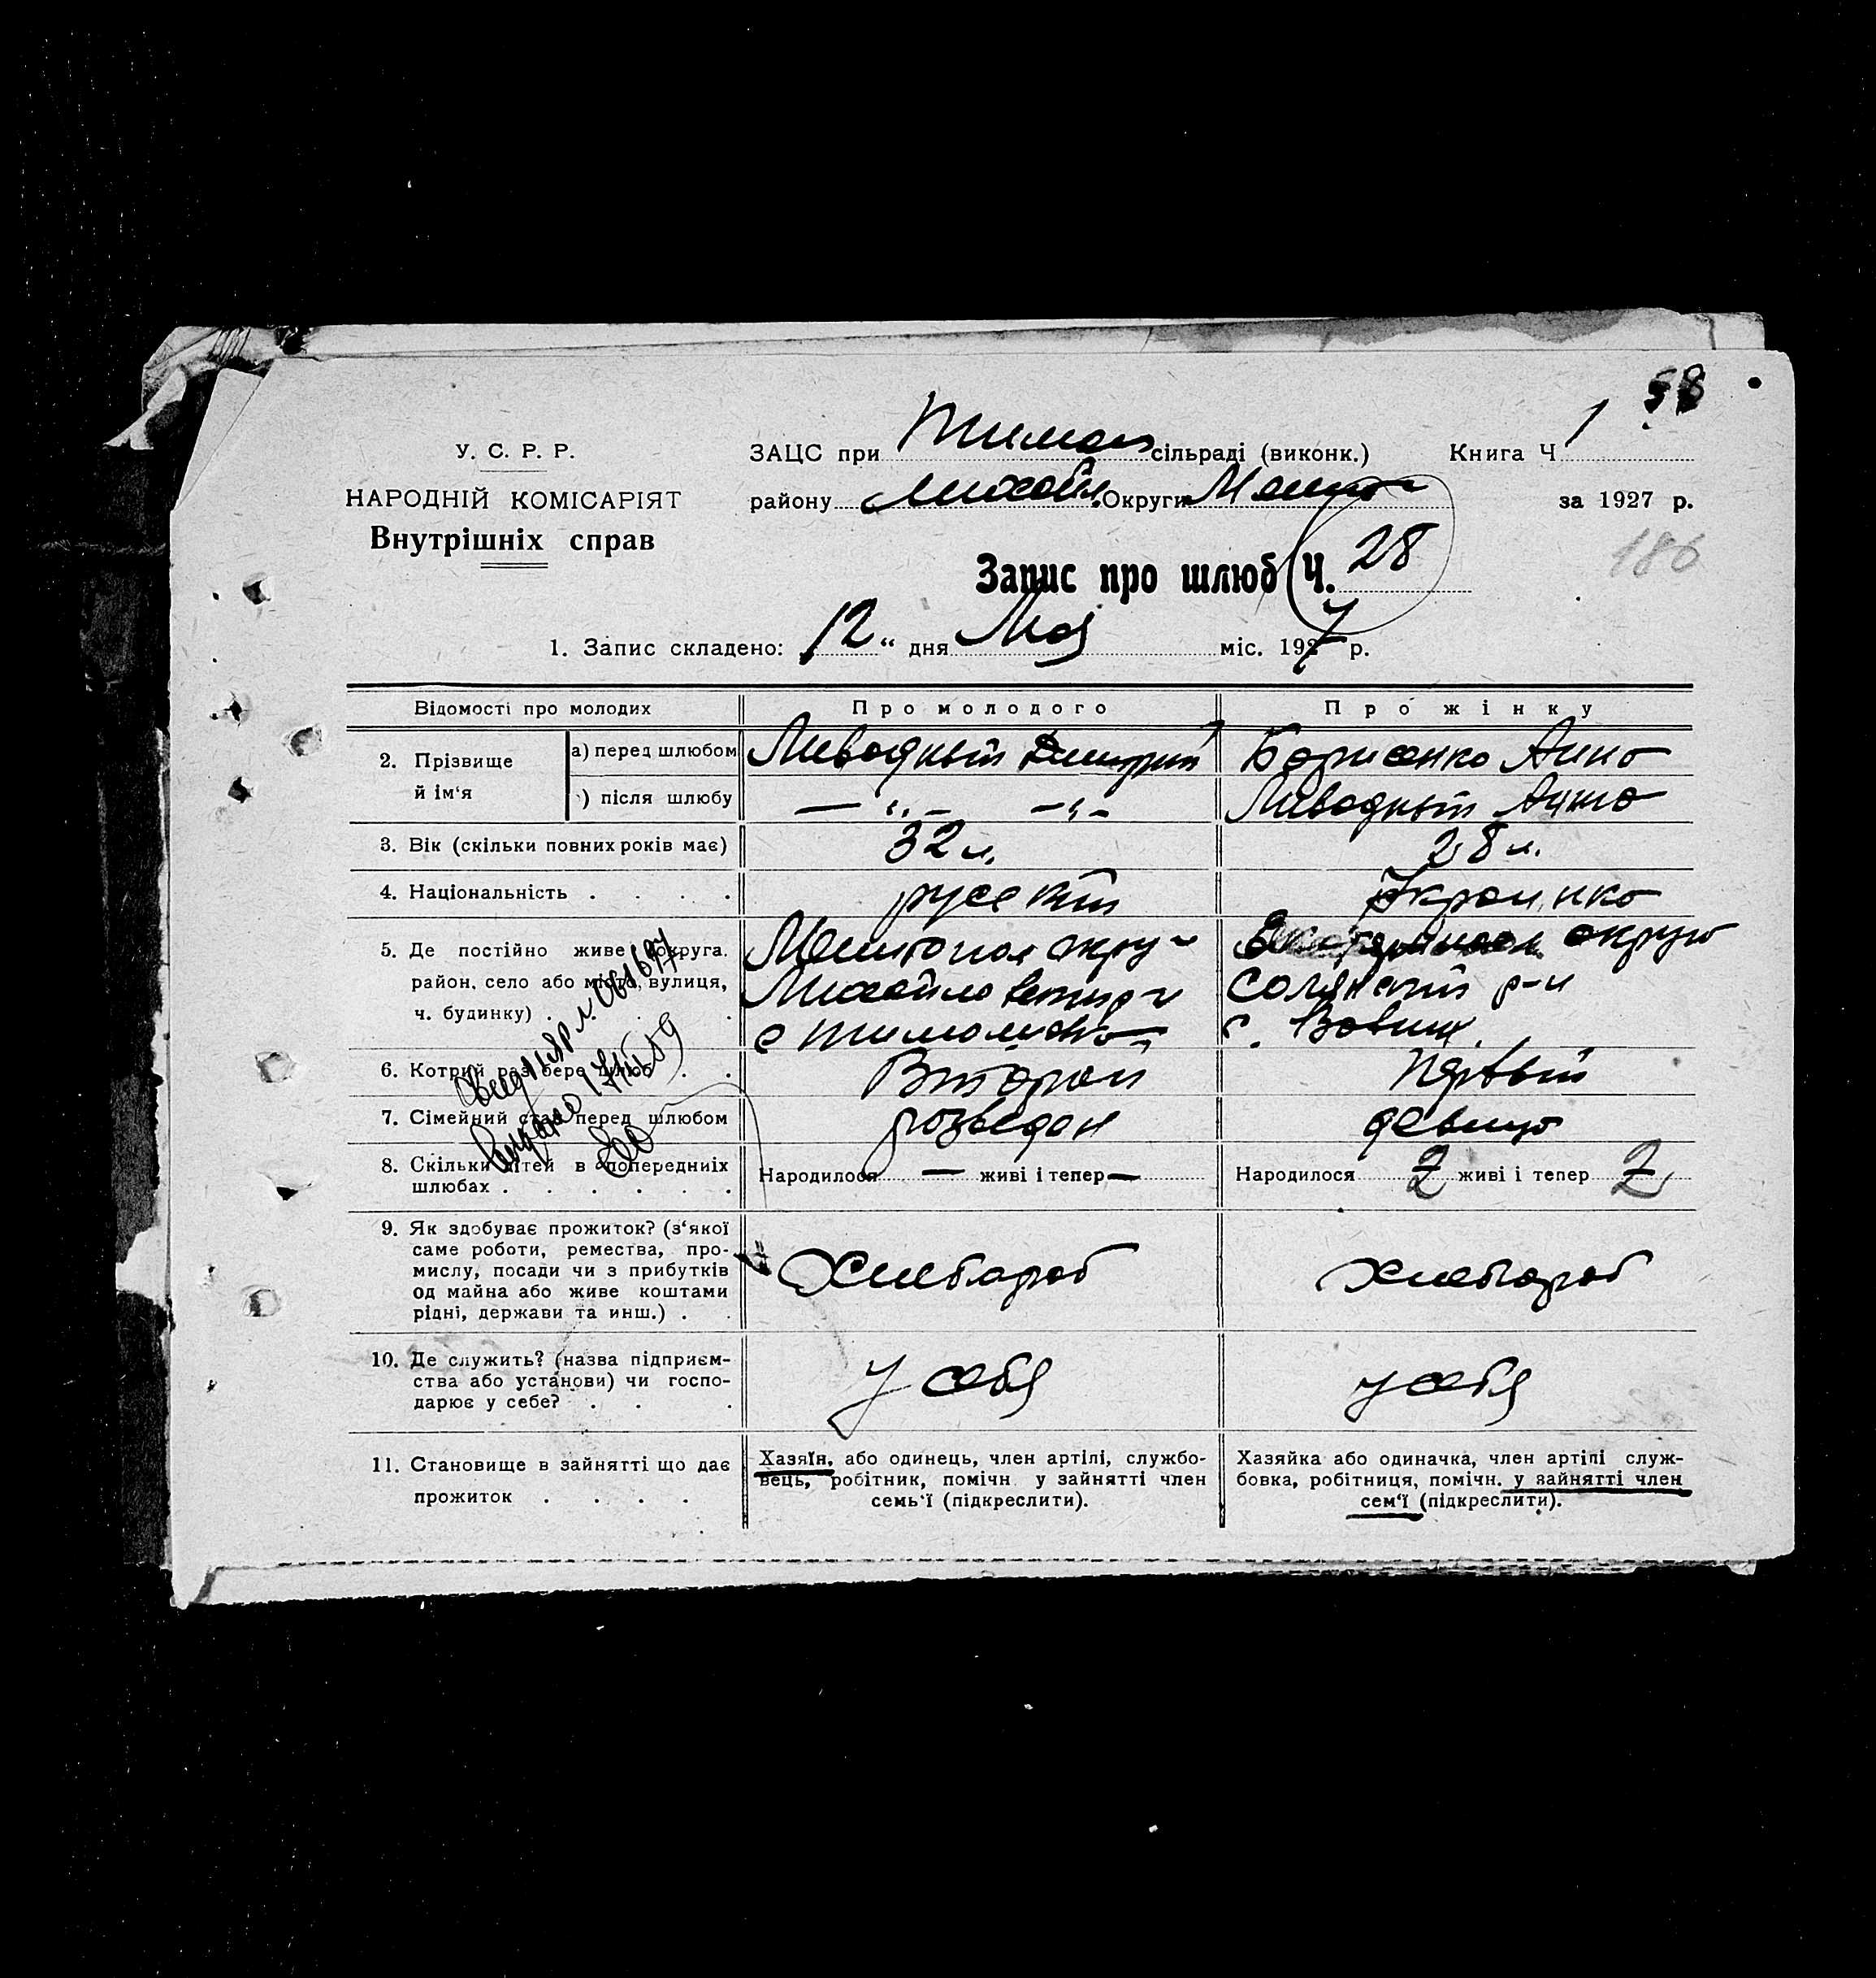 58
У. С. Р. Р.
НАРОДНІЙ КОМІСАРІЯТ
Внутрішніх справ
ЗАЦС при Тимош сільраді (виконк.) Книга Ч 1
району Михайл. Округи Мелит за 1927 р.
186
Запис про шлюб Ч. 28
1. Запис складено: 12 “ дня Мая міс. 1927 р.
Відомості про молодих Про молодого Про жінку
2. Прізвище й ім‘я а) перед шлюбом Ливодный Дмитрий Борисенко Анна
) після шлюбу — „ — — „ — Ливодный Анна
3. Вік (скільки повних років має) 32 л. 28 л.
4. Національність . . . . русский Украинка
5. Де постійно живе округа. Мелитопол округ округ
район, село або місто, вулиця, Михайловский р-н Солянский р-н
ч. будинку) . . . с с.
6. Котрий раз бере шлюб . . Второй Первый
7. Сімейний стан перед шлюбом розведен девица
8. Скільки дітей в попередниіх Народилося — живі і тепер — Народилося 2 живі і тепер 2
шлюбах . . . . . .
9. Як здобуває прожиток? (з‘якої
саме роботи, ремества, про-
мислу, посади чи з прибутків Хлебороб хлебороб
од майна або живе коштами
рідні, держави та инш.) . .
10. Де служить? (назва підприєм-
ства або установи) чи госпо- у себя у себя
дарює у себе? . . .
11. Становище в зайнятті що дає
прожиток . . . .
Хазяїн, або одинець, член артілі, службо-
вець, робітник, помічн у зайнятті член
семь‘ї (підкреслити).
Хазяйка або одиначка, член артілі служ-
бовка, робітниця, помічн. у зайнятті член
сем‘ї (підкреслити).